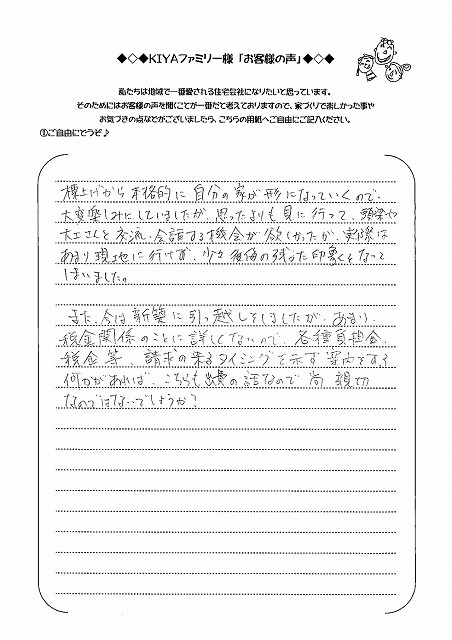 ◆◇◆KIYAファミリー様「お客様の声」◆◇◆
私たちは地域で一番愛される住宅会社になりたいと思っています。
そのためにはお客様の声を聞くことが一番だと考えておりますので、家づくりで楽しかった事や
お気づきの点などがございましたら、こちらの用紙へご自由にご記入ください。
①ご自由にどうぞ♪
棟上げから本格的に自分の家が形になっていくので、
大変楽しみにしていましたが、思ったよりも見に行って、頭梁や
大工さんと交流、会話する機会が欲しかったが、実際は
あまり現地に行けず、少々後悔の残った印象となって
しまいました。
また、今は新築に引っ越しをしましたが、あまり
税金関係のことに詳しくないので、各種負担金、
税金等、請求の来るタイミングを示す案内をする
何かがあれば、こちらも費の話なので尚親切
なのではないでしょうか?